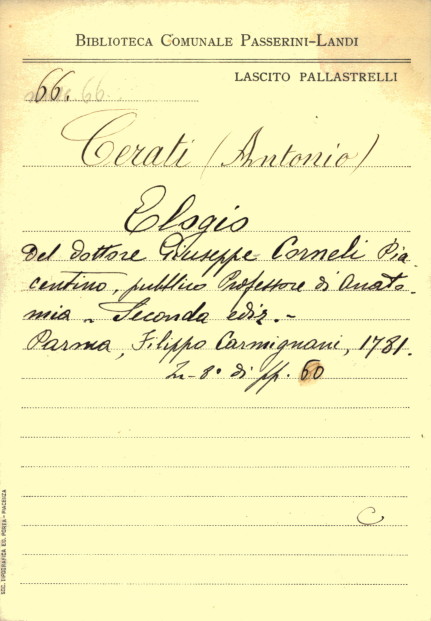 BIBLIOTECA COMUNALE PASSERINI-LANDI
LASCITO PALLASTRELLI
66.
Cerati (Antonio)
Elogio
Del dottore Giuseppe Corneli Pia
centino, pubblico Professore di Anato-
mia - Seconda ediz. -
Parma, Filippo Carmignani, 1781.
In-8° di pp. 60
C
SOC. TIPOGRAFICA ED. PORTA - PIACENZA